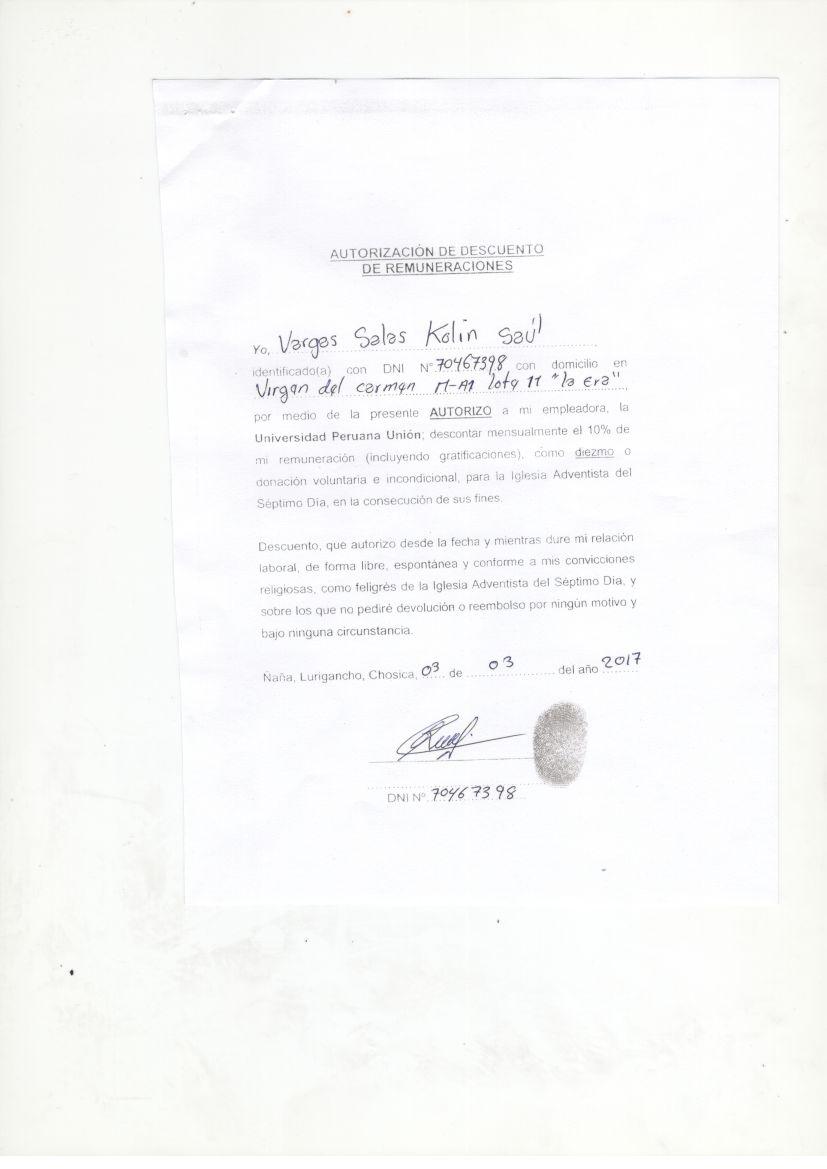 AUTORIZACIÓN DE DESCUENTO
DE REMUNERACIONES
Yo, Vargas Salas Kolin Saúl
identificado(a) con DNI N° 70467398 con domicilio en
Virgen del carmen M-A1 lote 11 "la Era"
por medio de la presente AUTORIZO a mi empleadora, la
Universidad Peruana Unión; descontar mensualmente el 10% de
mi remuneración (incluyendo gratificaciones), como diezmo o
donación voluntaria e incondicional, para la Iglesia Adventista del
Séptimo Día, en la consecución de sus fines.
Descuento, que autorizo desde la fecha y mientras dure mi relación
laboral, de forma libre, espontánea y conforme a mis convicciones
religiosas, como feligrés de la Iglesia Adventista del Séptimo Día, y
sobre los que no pediré devolución o reembolso por ningún motivo y
bajo ninguna circunstancia.
Ñaña, Lurigancho, Chosica, 03 de 03 del año 2017
DNI N° 70467398